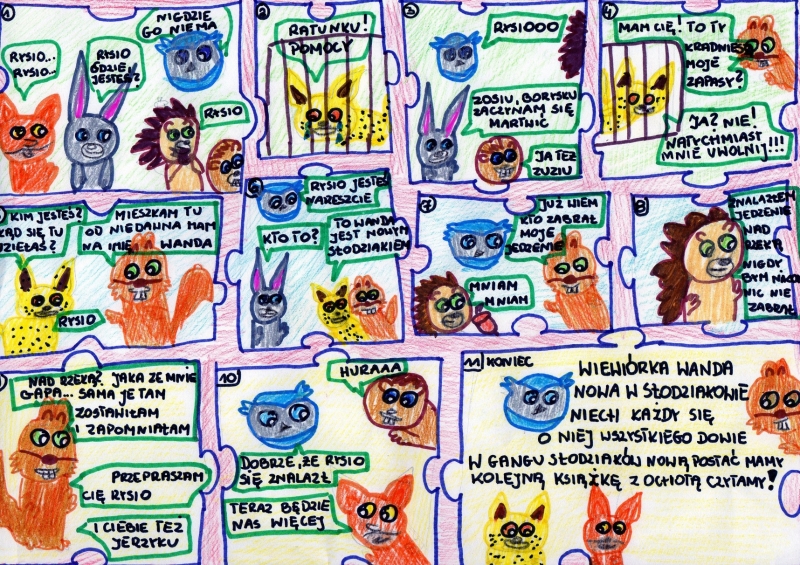 1
RYSIO...
RYSIO...
RYSIO
GDZIE
JESTEŚ?
NIGDZIE
GO NIE MA
RYSIO
2
RATUNKU!
POMOCY
3
RYSIOOO
ZOSIU, BORYSKU
ZACZYNAM SIĘ
MARTWIĆ
JA TEŻ
ZUZIU
4
MAM CIĘ! TO TY
KRADNIESZ
MOJE
ZAPASY?
JA? NIE!
NATYCHMIAST
MNIE UWOLNIJ!!!
KIM JESTEŚ?
SKĄD SIĘ TU
WZIĘŁAŚ?
MIESZKAM TU
OD NIEDAWNA MAM
NA IMIĘ WANDA
RYSIO
6
RYSIO JESTEŚ
NARESZCIE
KTO TO?
TO WANDA
JEST NOWYM
SŁODZIAKIEM
7
JUŻ WIEM
KTO ZABRAŁ
MOJE
JEDZENIE
MNIAM
MNIAM
8
ZNALAZŁEM
JEDZENIE
NAD
RZEKĄ
NIGDY
BYM NIKOMU
NIC NIE
ZABRAŁ
NAD RZEKĄ? JAKA ZE MNIE
GAPA... SAMA JE TAM
ZOSTAWIŁAM
I ZAPOMNIAŁAM
PRZEPRASZAM
CIĘ RYSIO
I CIEBIE TEŻ
JERZYKU
10
HURAAA
DOBRZE, ŻE RYSIO
SIĘ ZNALAZŁ
TERAZ BĘDZIE
NAS WIĘCEJ
11 KONIEC
WIEWIÓRKA WANDA
NOWA W SŁODZIAKOWIE
NIECH KAŻDY SIĘ
O NIEJ WSZYSTKIEGO DOWIE
W GANGU SŁODZIAKÓW NOWĄ POSTAĆ MAMY
KOLEJNĄ KSIĄŻKĘ Z OCHOTĄ CZYTAMY!